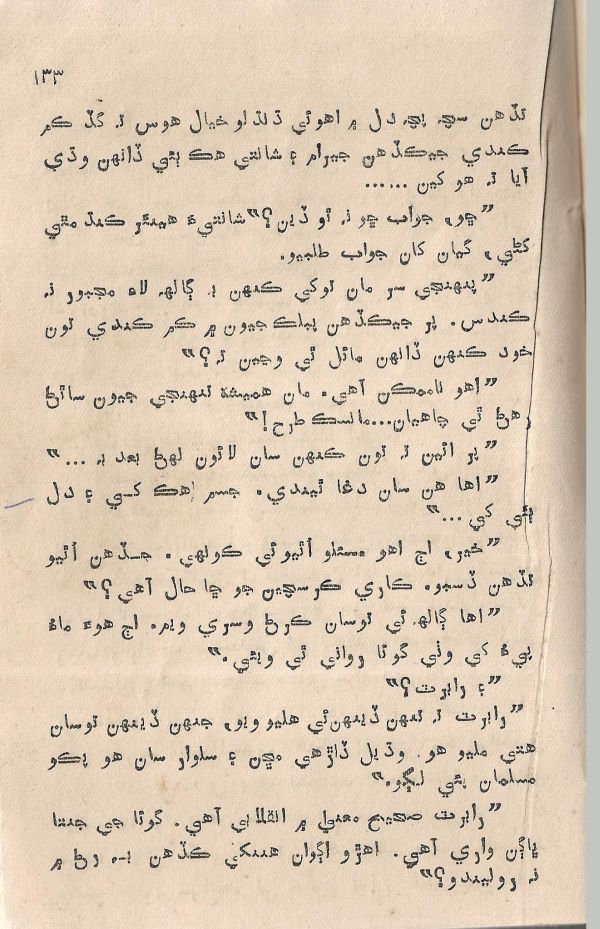 ۱۳۳
تڏهن سچ پچ دل ۾ اهوئي ڌنڌلو خيال هوس ته گڏ ڪم
ڪندي جيڪڏهن جيرام ۽ شانتي هڪ ٻئي ڏانهن وڌي
آيا ته هو کين ......
”ڇو، جواب ڇو نه ٿو ڏين؟“ شانتيءَ هيئنئر ڪنڌ مٿي
کڻي، گيان کان جواب طلبيو.
”پنهنجي سر مان توکي ڪنهن به ڳالهه لاءِ مجبور نه
ڪندس. پر جيڪڏهن پبلڪ جيون ۾ ڪم ڪندي تون
خود ڪنهن ڏانهن مائل ٿي وڃين ته؟“
”اهو ناممڪن آهي. مان هميشه تنهنجي جيون ساٿڻ
رهڻ ٿي چاهيان...مانسڪ طرح!“
”پر ائين ته تون ڪنهن سان لائون لهڻ بعد به ...“
”اها هن سان دغا ٿيندي. جسم هڪ کي ۽ دل
ٻئي کي ...“
”خير، اڄ اهو مسئلو اُٿيوئي ڪونهي. جڏهن اُٿيو
تڏهن ڏسبو. ڪاري ڪرسچين جو ڇا حال آهي؟“
”اها ڳالهه ئي توسان ڪرڻ وسري ويم. اڄ هوءَ ماءُ
پيءُ کي وٺي گوئا رواني ٿي ويئي.“
”۽ رابرٽ؟“
”رابرٽ ته تنهن ڏينهن ئي هليو ويو، جنهن ڏينهن توسان
هتي مليو هو. وڌيل ڏاڙهي مڇن ۽ سلوار سان هو پڪو
مسلمان ٻئي لڳو.“
”رابرٽ صحيح معنيٰ ۾ انقلابي آهي. گوئا جي جنتا
ڀاڳن واري آهي. اهڙو اڳوان هنکي ڪڏهن به رڻ ۾
نه روليندو؟“